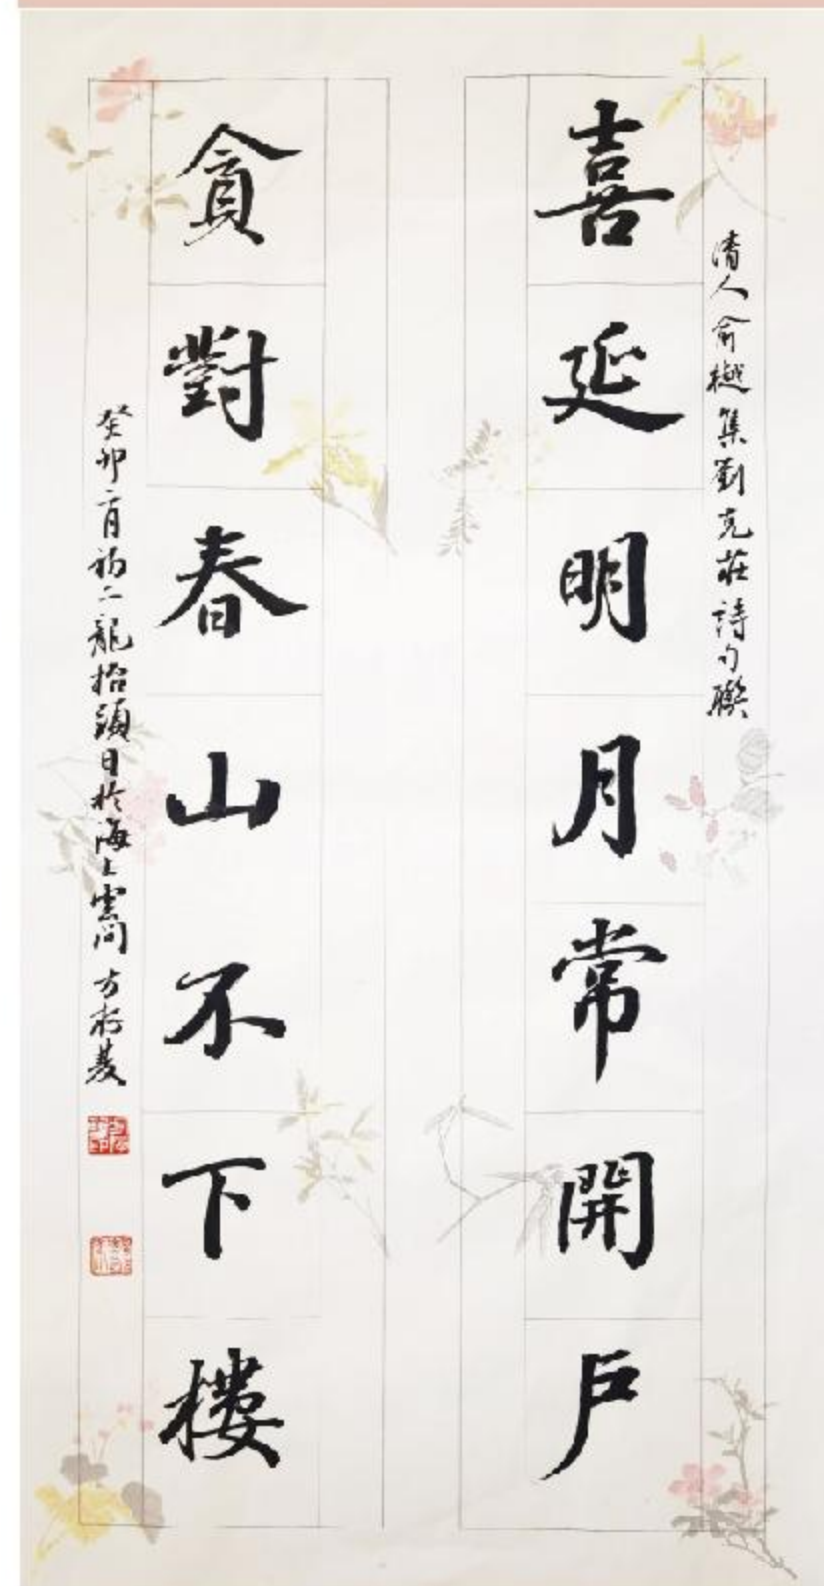 清人俞樾集劉克莊詩句聯
喜延明月常開戶
貪對春山不下樓
癸卯二月初二龍抬頭日於海上雲間 方